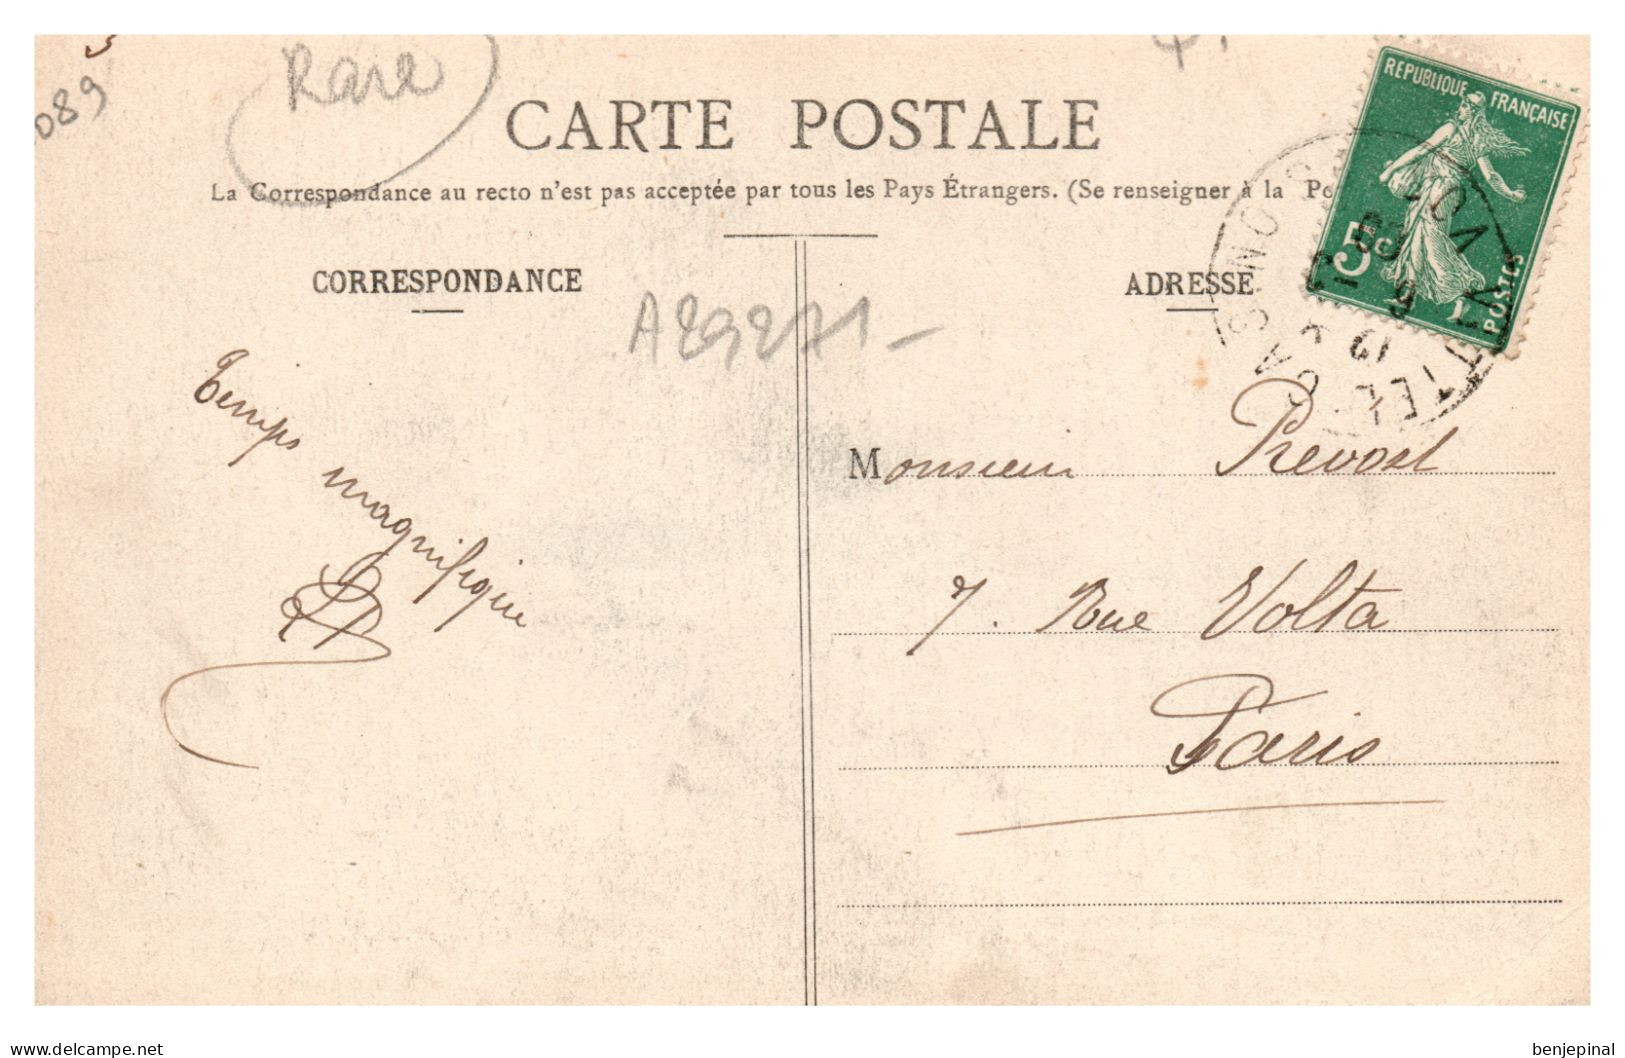 089
Rare
CARTE POSTALE
La Correspondance au recto n'est pas acceptée par tous les Pays Étrangers. (Se renseigner à la Po
REPUBLIQUE FRANÇAISE
5c
POSTES
VITTEL CASINO
VOSGES
CORRESPONDANCE
ADRESSE
A29271-
Temps
magnifique
Monsieur Prevost
7. Rue Volta
Paris
www.delcampe.net
benjepinal